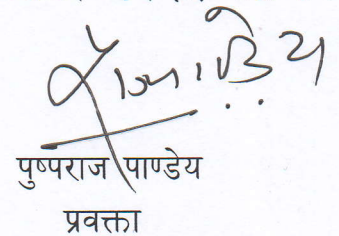 पुष्पराज पाण्डेय
प्रवक्ता